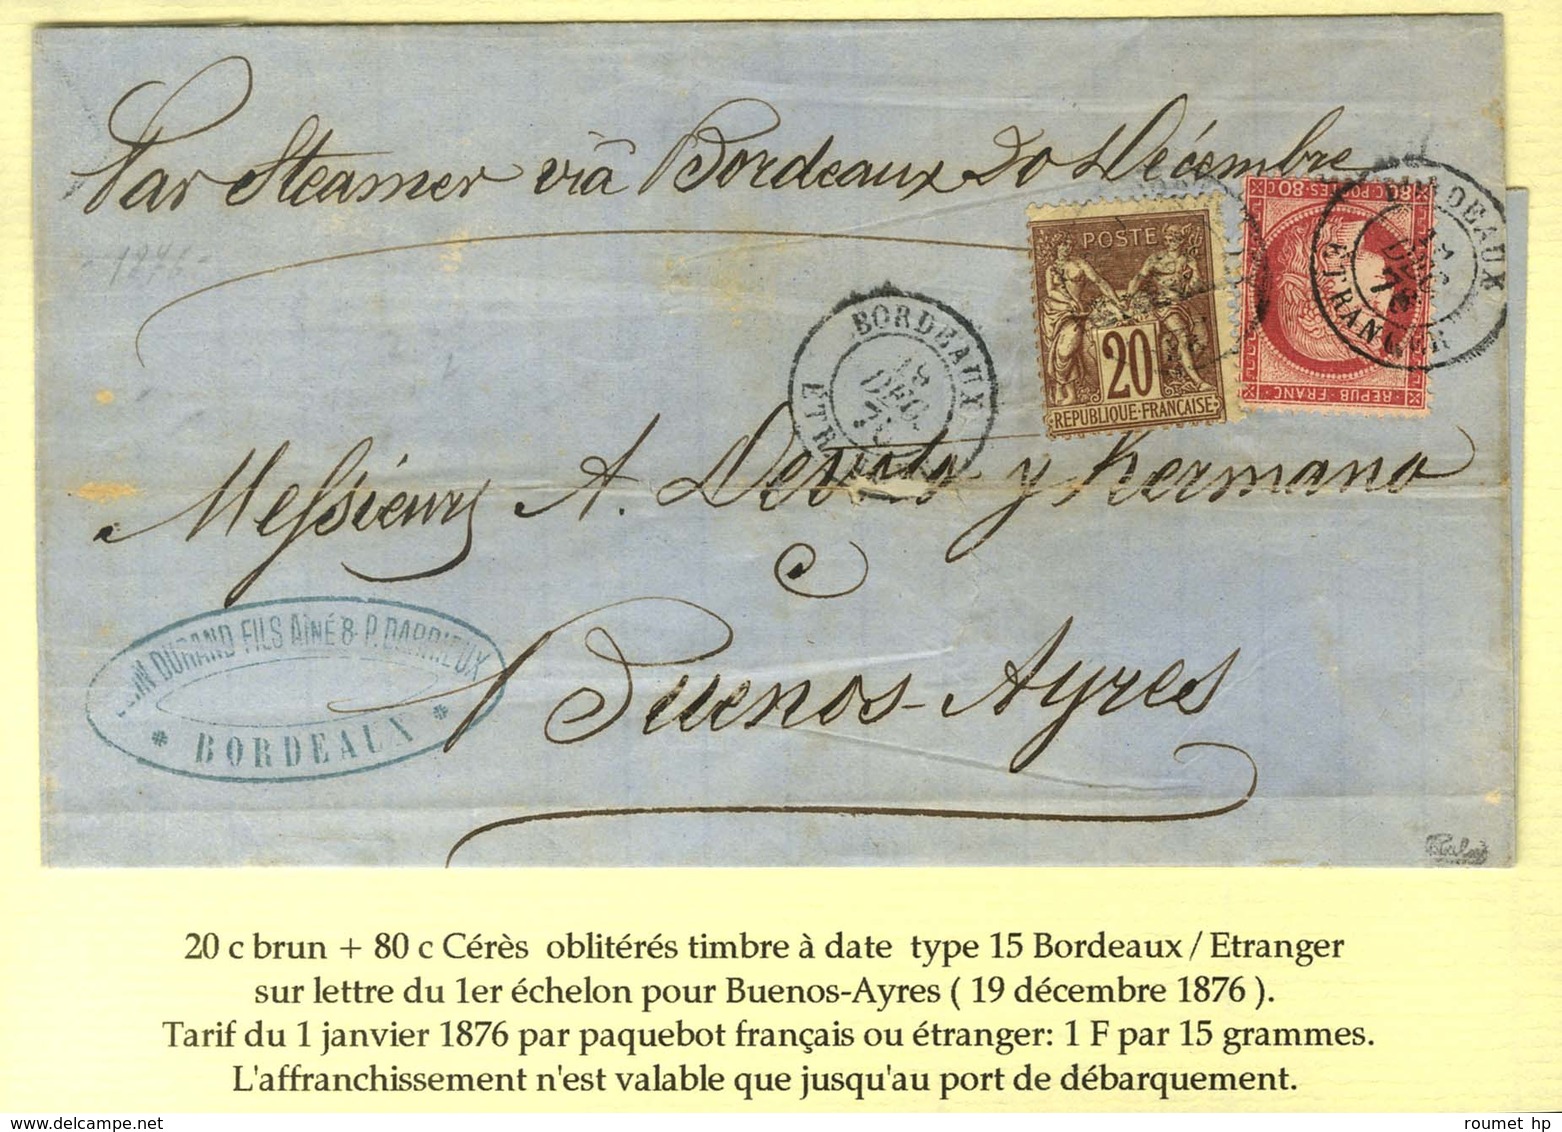 Par Steamer viâ Bordeaux 20 Décembre
1876
80 C POSTES 80 C
REPUB FRANC
POSTE
20
REPUBLIQUE FRANÇAISE
BORDEAUX
ETRANGER
DEC
BORDEAUX
18
DEC
Messieurs A. y hermano
Buenos-Ayres
DURAND FILS AINÉ & P. DARRIEUX
* BORDEAUX *
20 c brun + 80 c Cérès oblitérés timbre à date type 15 Bordeaux / Etranger
sur lettre du 1er échelon pour Buenos-Ayres ( 19 décembre 1876 ).
Tarif du 1 janvier 1876 par paquebot français ou étranger: 1 F par 15 grammes.
L'affranchissement n'est valable que jusqu'au port de débarquement.
roumet hp